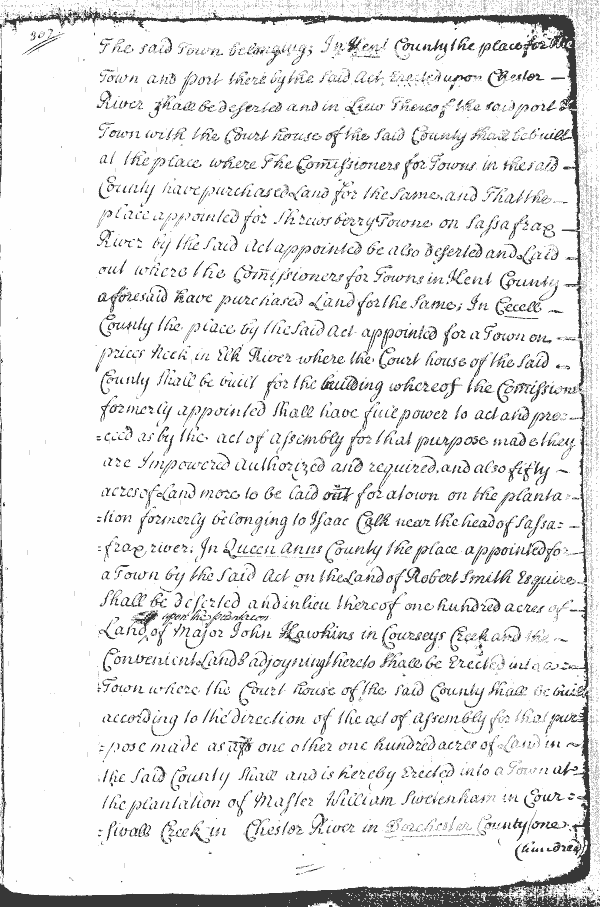 302
The said Town belonging; In Kent County the place for the
Town and Port there by the Said Act, Erected upon Chester –
River Shall be deserted and in Lieu Thereof the said port &
Town with the Court house of the Said County Shall be built
at the place where The Comissioners for Towns in the said –
County have purchased Land for the Same, and That the –
place appointed for Shrewsberry Towne on Sassafrax –
River by the Said Act appointed be also deserted and Laid –
out where the Comissioners for Towns in Kent County –
aforesaid have purchased Land for the Same; In Cecell –
County the place by the Said Act appointed for a Town on –
prices Neck in Elk River where the Court house of the Said –
County Shall be built for the building whereof the Comissions
formerly appointed Shall have full power to act and pro=
=ceed as by the act of Assembly for that purpose made they
are Impowered Authorized and required, and also fifty –
acres of Land more to be laid out for a town on the planta=
=tion formerly belonging to Isaac Calk near the head of Sassa=
=frax river; In Queen Anns County the place appointed for
a Town by the Said Act on the Land of Robert Smith Esquire
Shall be deserted and in lieu thereof one hundred acres of
upon the plantation
Land, of Major John Hawkins in Courseys Creek and the
Convenient Lands adjoyning thereto Shall be Erected into a
=Town where the Court house of the Said County Shall be built
according to the direction of the act of Assembly for that pur=
=pose made as also one other one hundred acres of Land in
the Said County Shall and is hereby Erected into a Town at
the plantation of Master William Swetenham in Cour=
=sivall Creek in Chester River in Dorchester County one
(hundred